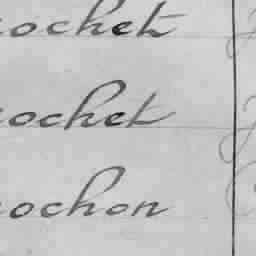 ochet
ochet
ochon